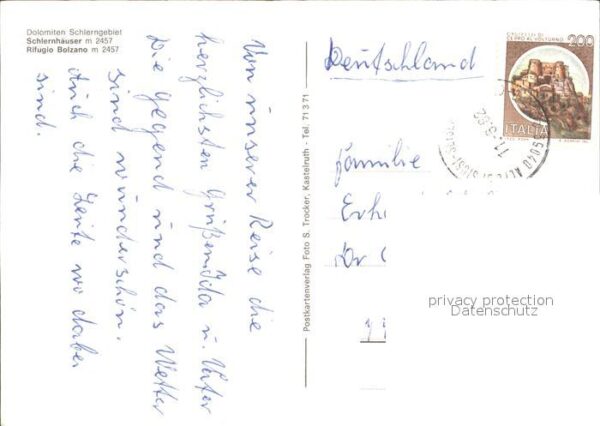 Dolomiten Schlerngebiet
Schlernhäuser m 2457
Rifugio Bolzano m 2457
Von unserer Reise die
herzlichsten Grüße u. Vater
Die Gegend und das Wetter
sind wunderschön.
Auch die Leute wo dabei
sind.
Postkartenverlag Foto S. Trocker, Kastelruth - Tel. 71 3 71
Deutschland
Familie
Erh
Dr
CASTELLO DI
CERRO AL VOLTURNO
200
ITALIA
39040
privacy protection
Datenschutz